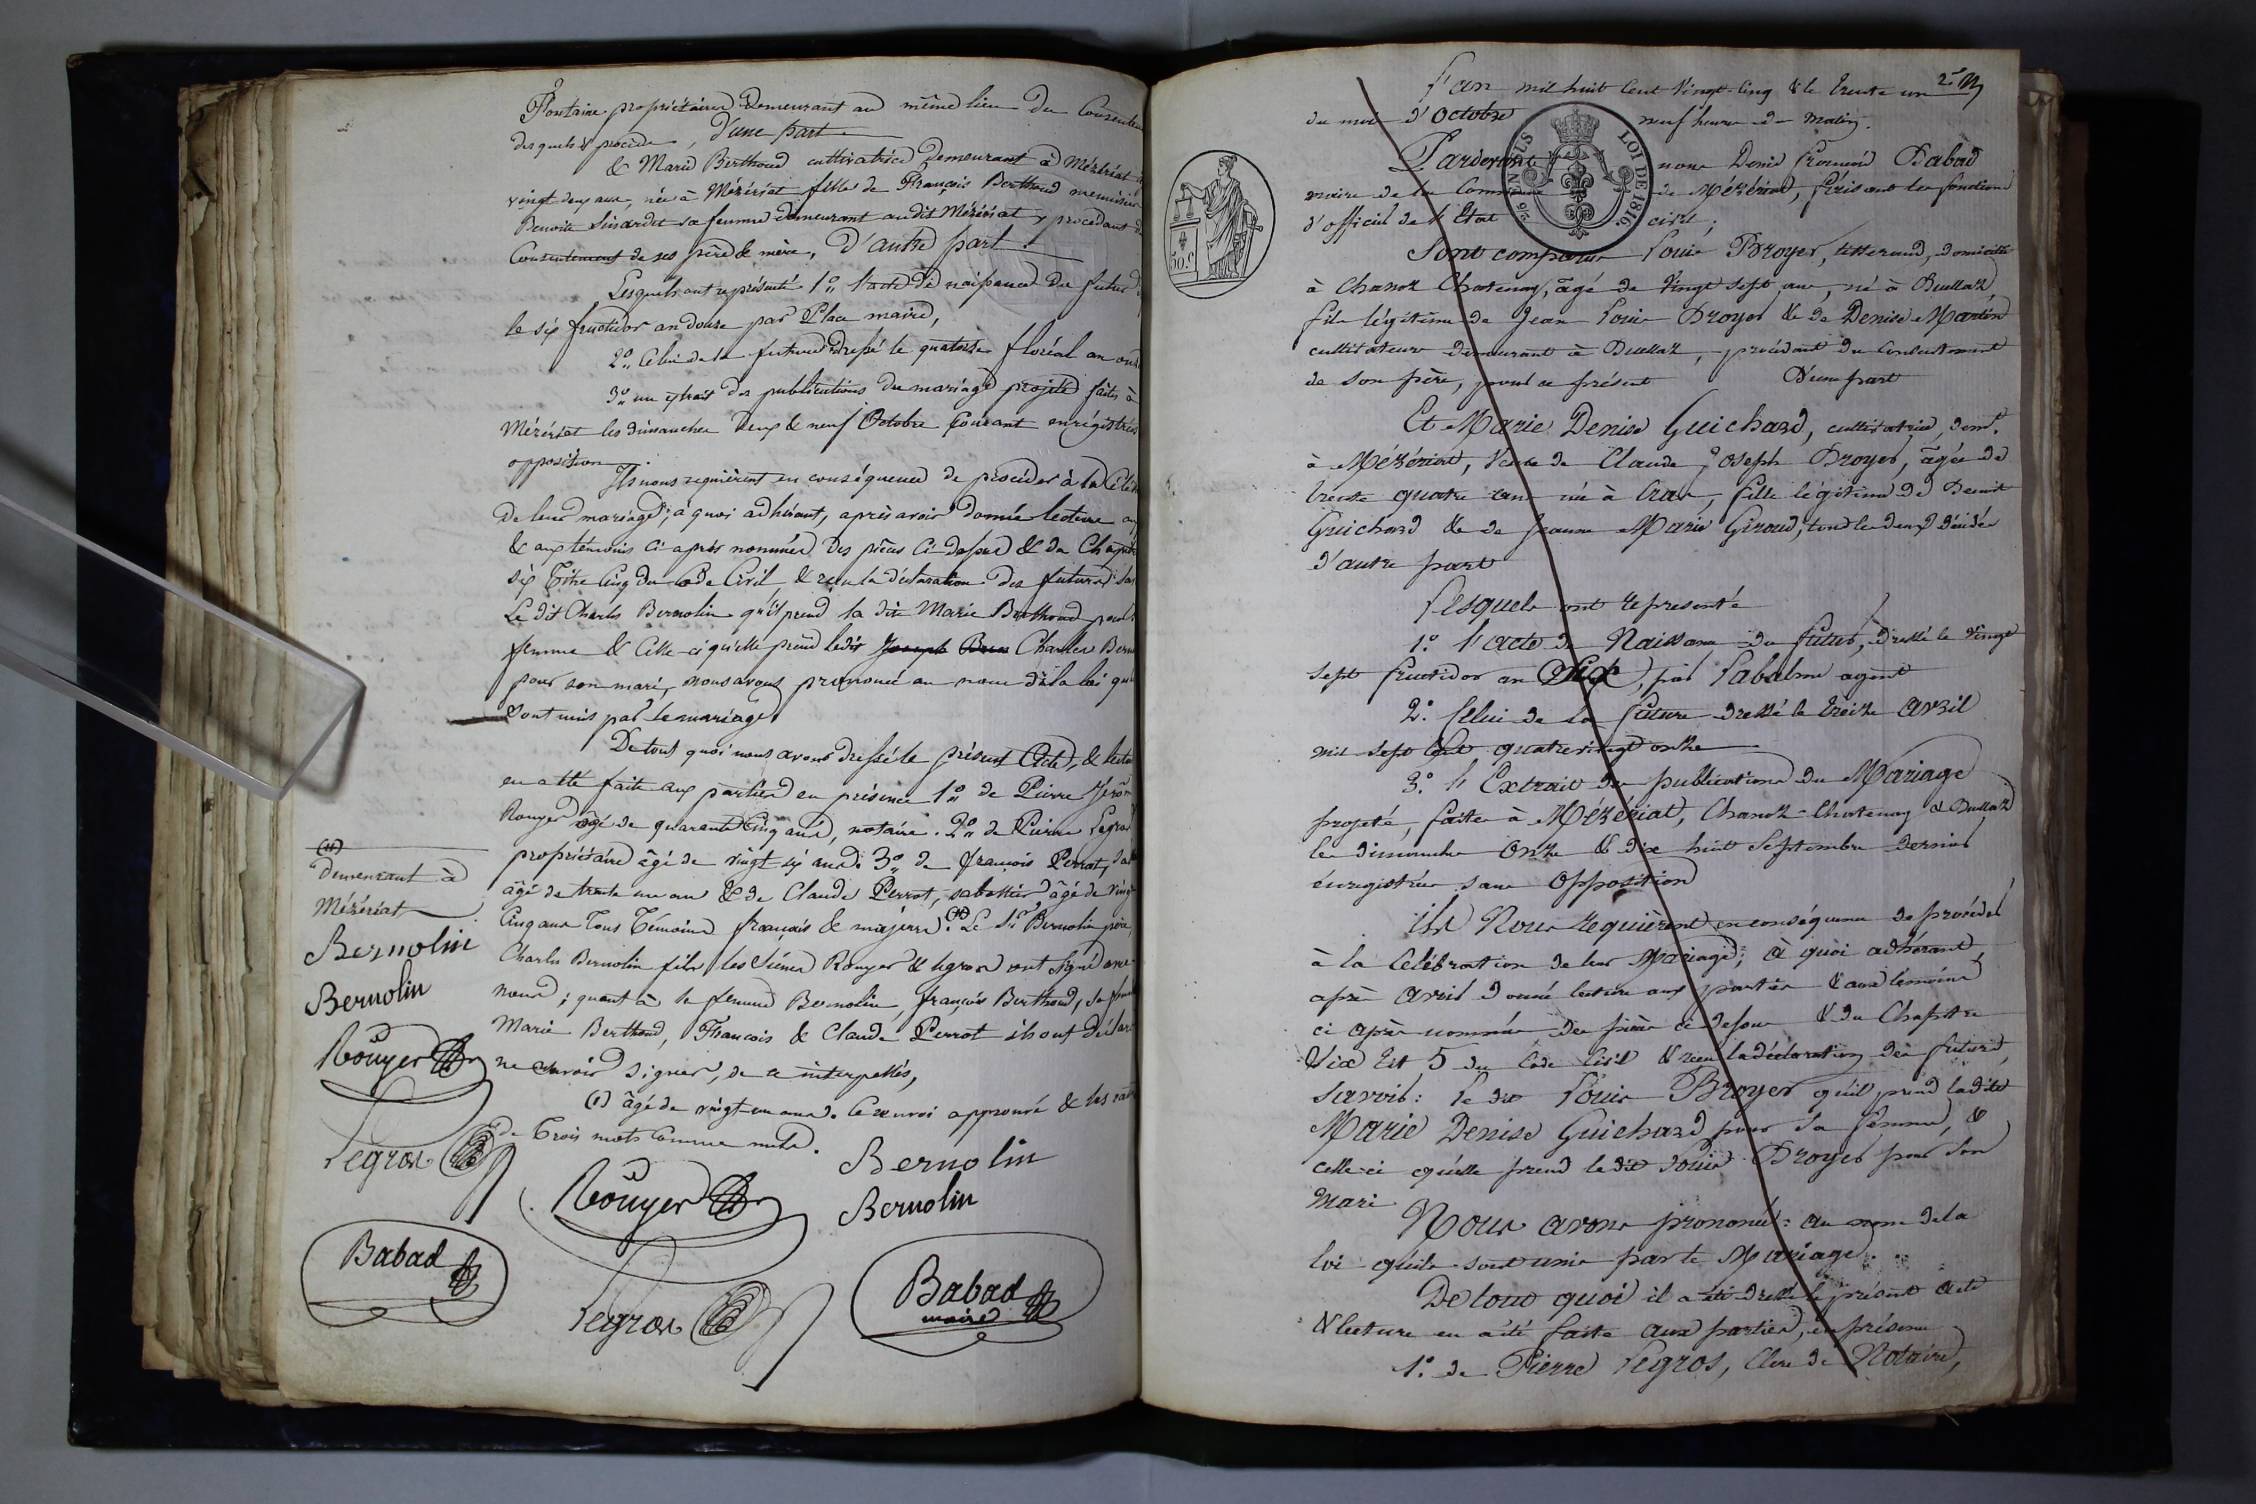 Fontaine propriétaires Demeurant au même lieu du Consentem
desquels il procède, d'une part
& Marie Berthoud cultivatrice Demeurant à Mézériat
vingt deux ans, née à Mézériat fille de François Berthoud menuisier
Benoite Sinardet sa femme demeurant audit Mézériat y procédant d
Consentement de ses père & mère, D'autre part
Lesquels ont représenté 1º l'acte de naissance du futur d
le six fructidor an douze par Place maire,
2º Celui de la future dressé le quatorze floréal an onz
3º un extrait des publications du mariage projeté faites à
Mézériat les dimanches deux & neuf Octobre courant enrégistrées
opposition.
Ils nous requièrent en conséquence de procéder à la Céléb
De leur mariage; à quoi adhérant, après avoir donné lecture
& aux témoins ci après nommés Des pièces Ci-dessus & du Chapitre
six Titre Cinq du Code Civil, & reçu la déclaration des futurs: Sav
Le dit Charles Bernolin qu'il prend la dite Marie Berthoud pour
femme & Celle-ci qu'elle prend ledit Joseph Charles Bern
pour son mari, nous avons prononcé au nom de la loi qu
sont unis par le mariage.
De tout quoi nous avons dressé le présent Acte, & lectu
en a été faite aux parties en présence 1º de Pierre Jérôm
Rouyer âgé de quarante Cinq ans, notaire. 2º de Pierre Legros
propriétaire âgé de vingt six ans. 3º de françois Perrot, sab
âgé de trente un ans & de Claude Perrot, sabottier, âgé de vingt
Cinq ans Tous Témoins français & majeurs. Le Sr Bernolin père,
Charles Bernolin fils, les Sieurs Rouyer & Legros ont signé avec
nous; quant à la femme Bernolin, françois Berthoud, sa fem
Marie Berthoud, François & Claude Perrot ils ont déclaré
ne savoir signer, de ce interpellés,
(1) âgé de vingt-un ans. Ce renvoi approuvé & les rat
de Trois mots Comme nuls.
demeurant à
Mézériat
Bernolin
Bernolin
Rouyer
Legros
Babad
Bernolin
Rouyer
Bernolin
Legros
Babad
maire
L'an mil huit Cent Vingt-Cinq & le trente un
du mois d'Octobre neuf heures du Matin.
Pardevant nous Denis François Babad
maire de la Commune de Mézériat, faisant les fonctions
d'officier de l'Etat civil;
Sont comparus Louis Broyer, tisserand, domicilié
à Chanoz Chatenay, âgé de Vingt sept ans, né à Buellaz,
fils légitime de Jean Louis Broyer & de Denise Martin
cultivateurs demeurant à Buellaz, procédant du Consentement
de son père, pour ce présent D'une part
Et Marie Denise Guichard, cultivatrice, demt.
à Mézériat, Veuve de Claude Joseph Broyer, âgée de
trente quatre ans née à Cras, fille légitime de Benoit
Guichard & de Jeanne Marie Giroud, tous les deux décédés
D'autre part
Lesquels ont représenté
1º l'acte de Naissance du futur, dressé le Vingt
sept fructidor an Dix, par Labalme agent
2º Celui de la future dressé le treize avril
mil sept Cent quatrevingt onze
3º l'Extrait des publications du Mariage
projeté, faites à Mézériat, Chanoz-Chatenay & Buellaz
les dimanches Onze & dix huit Septembre dernier
enregistrées sans Opposition
Ils Nous requièrent en conséquence de procéder
à la Célébration de leur Mariage; à quoi adhérant,
après avoir donné lecture aux parties & aux témoins
ci après nommés Des pièces ci dessus & du Chapitre
Six tit 5 du Code Civil & reçu la déclaration des futurs,
Savoir: Le dit Louis Broyer qu'il prend ladite
Marie Denise Guichard pour sa femme, &
celle-ci qu'elle prend le dit Louis Broyer pour son
mari
Nous avons prononcé: au nom de la
loi qu'ils sont unis par le Mariage.
De tout quoi il a été dressé le présent acte
& lecture en a été faite aux parties, en présence
1º de Pierre Legros, Clerc de Notaire,
50 c
LOI DE 1816